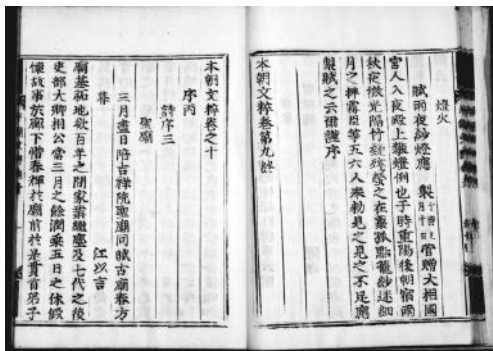 燈火
賦雨夜紗燈應 製 菅贈大相國
宮人入夜殿上擧燈例也于時重陽後朝宿雨
秋夜微光隔竹疑殘螢之在叢孤點籠紗迷細
月之插霧臣等五六人奉勅見之見之不足應
製賦之云爾謹序
本朝文粹卷第九終
本朝文粹卷之十
序丙
詩序三
聖廟
三月盡日陪吉祥院聖廟同賦古廟春方
暮 江以言
廟基祐地欲百年之間家業繼塵及七代之後
吏部大卿相公當三月之餘潤乘五日之休假
懷故事於廟下惜春輝於廟前於是貫首弟子